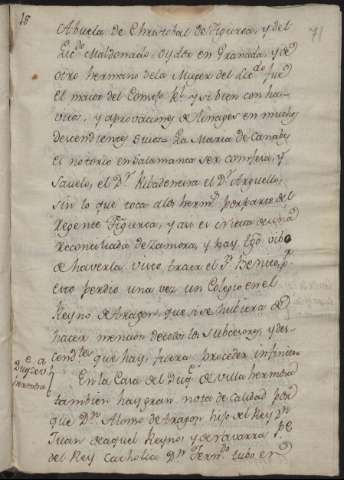 18
71
Abuela de Christobal de Figueroa, y del
Lic.do Maldonado, Oydor en Granada, y de
otro hermano de la Muger del Lic.do fue
el maior del Consejo R.l y si bien con ha-
vitos, y aprovaciones de linages en muchos
descendientes suios. La Maria de
es notorio en Salamanca ser confesa, y
Sauelo, el D.r Ribadeneira el D.r Arguello,
sin lo que toca a los herm.os por parte del
Regente Figueroa, y assi es nieta de una
reconciliada de Zamora, y hay tgo vibo
de haverla visto traer el S. Benito, p.r
esto perdio una vez un Colegio en el
Reyno de Aragon, que si se hubiera de
hacer mencion de todos los subcesores, y des-
cend.tes que hay, fuera proceder infinito.
Duq.e de a
Villa
hermosa
En la Casa del Duq.e de Villa hermosa
tambien hay gran nota de calidad por
que D.n Alonso de Aragon hijo del Rey D.n
Juan de aquel Reyno, y de Navarra P.e
del Rey Catholico D.n Fern.do tubo en